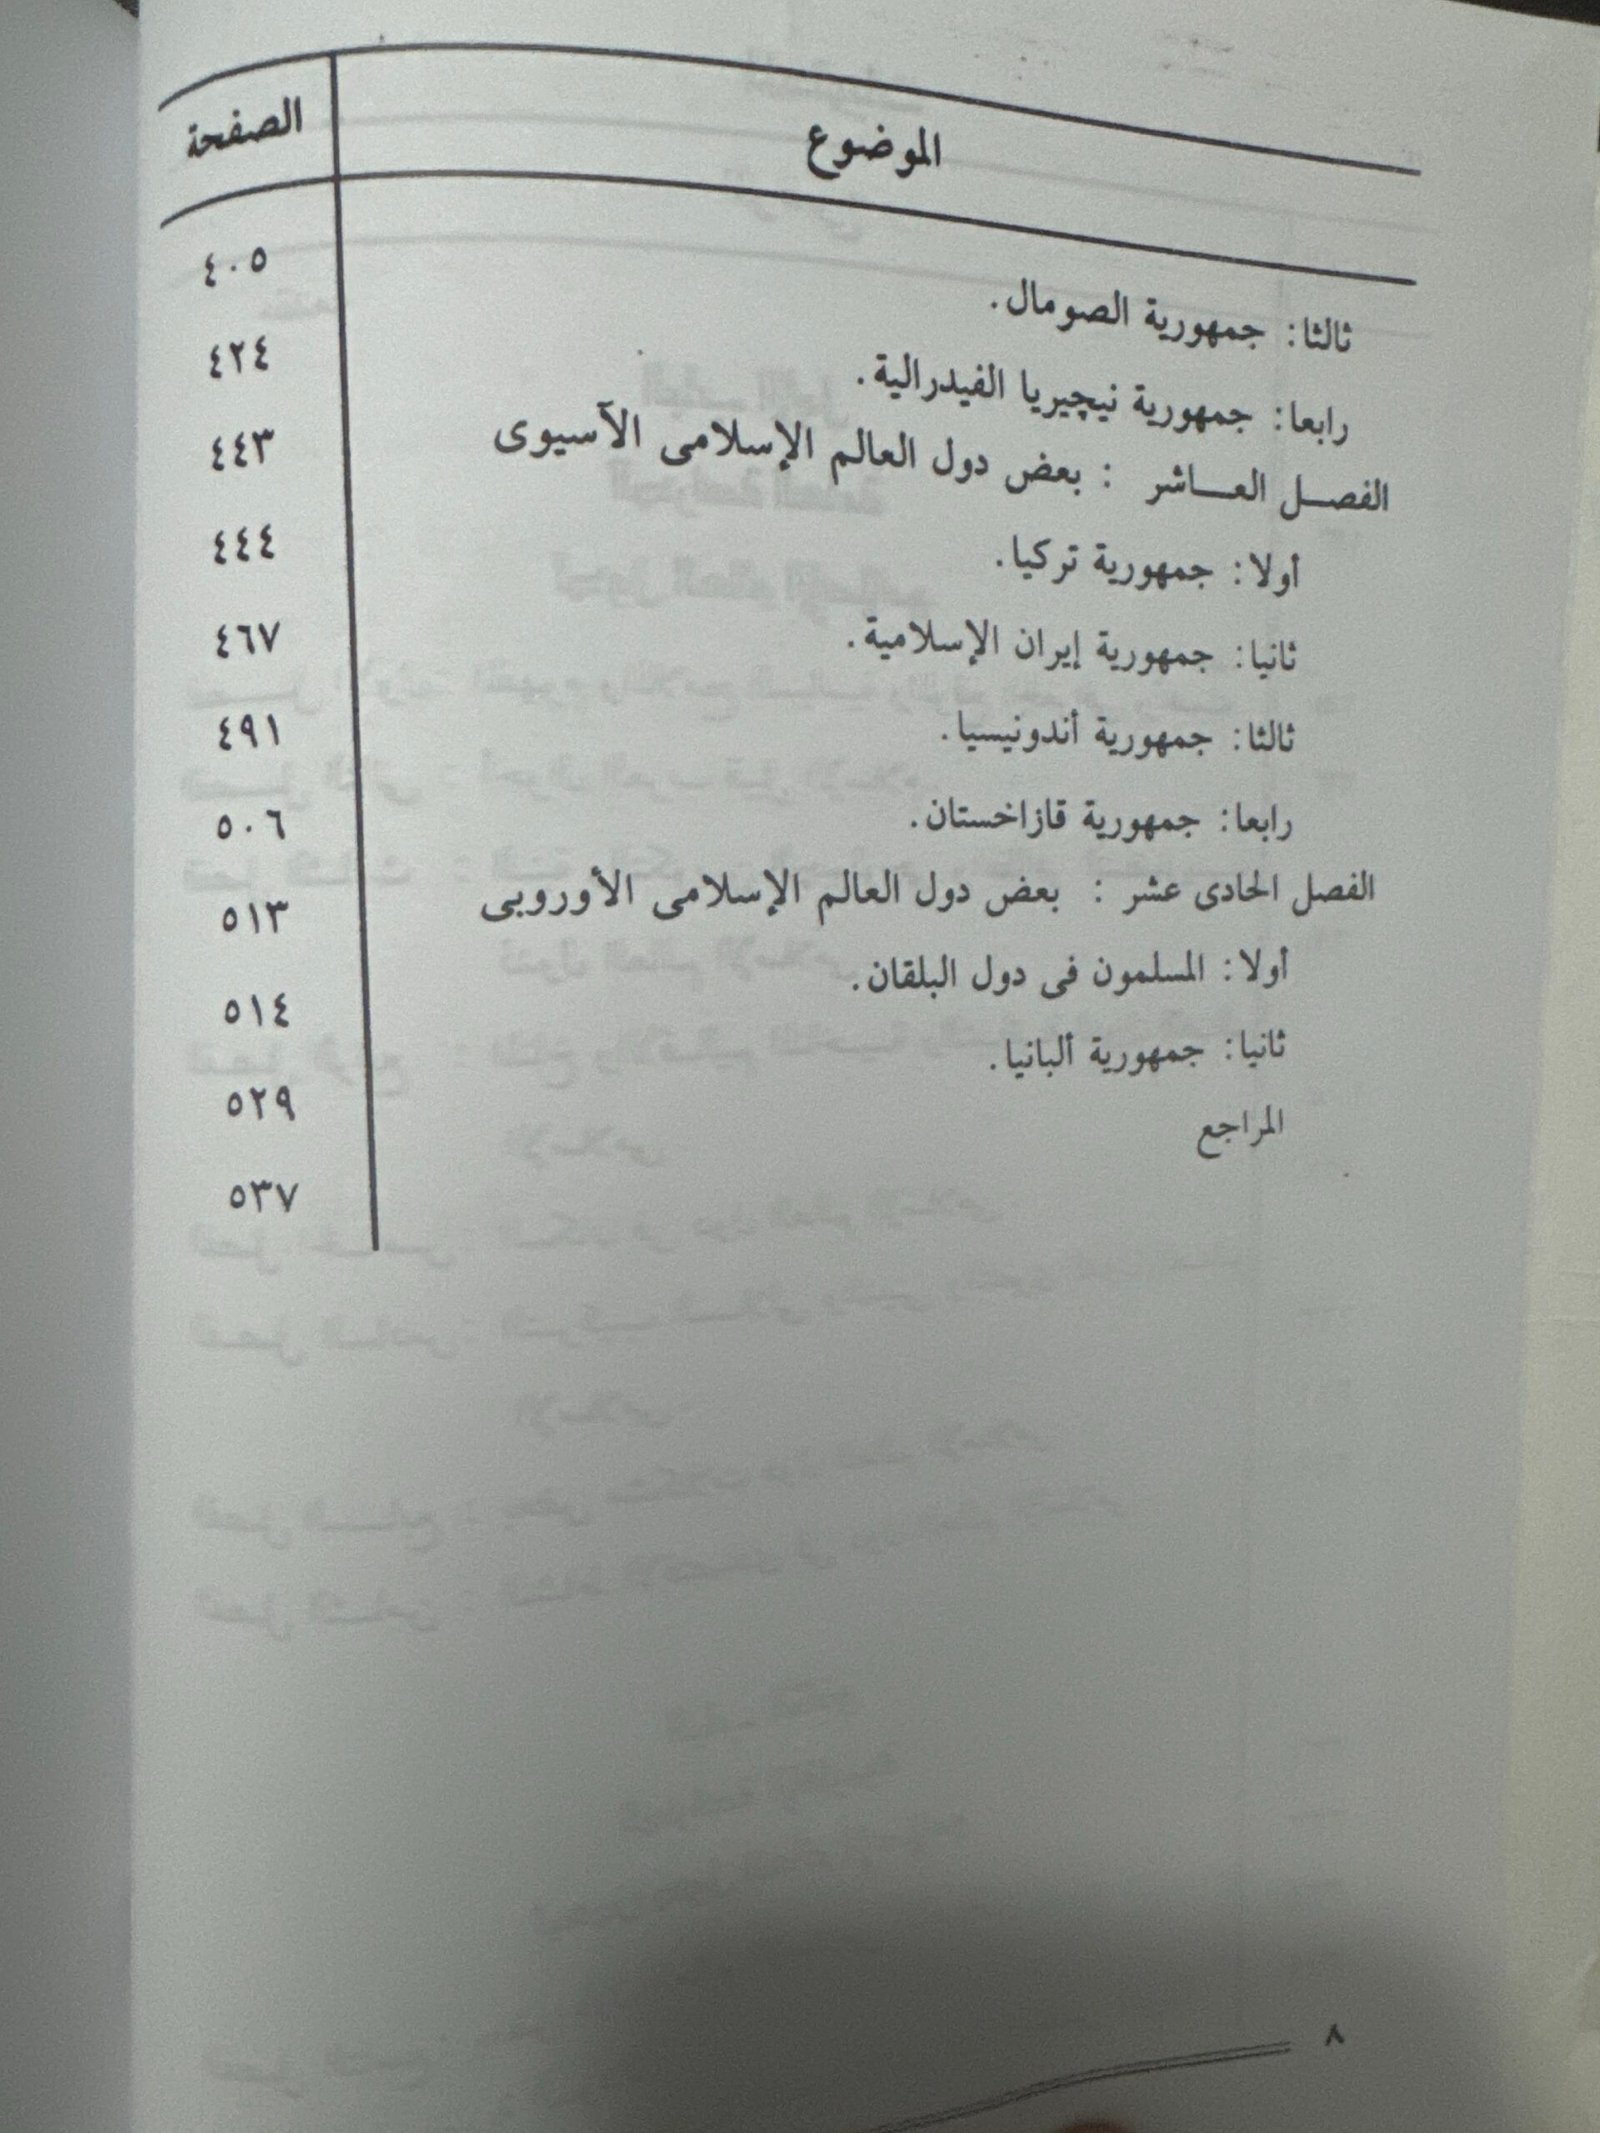 الموضوع الصفحة
ثالثا: جمهورية الصومال. ٤٠٥
رابعا: جمهورية نيچيريا الفيدرالية. ٤٢٤
الفصـــل العـــاشر : بعض دول العالم الإسلامى الآسيوى ٤٤٣
أولا: جمهورية تركيا. ٤٤٤
ثانيا: جمهورية إيران الإسلامية. ٤٦٧
ثالثا: جمهورية أندونيسيا. ٤٩١
رابعا: جمهورية قازاخستان. ٥٠٦
الفصل الحادى عشر : بعض دول العالم الإسلامى الأوروبى ٥١٣
أولا: المسلمون فى دول البلقان. ٥١٤
ثانيا: جمهورية ألبانيا. ٥٢٩
المراجع ٥٣٧
٨